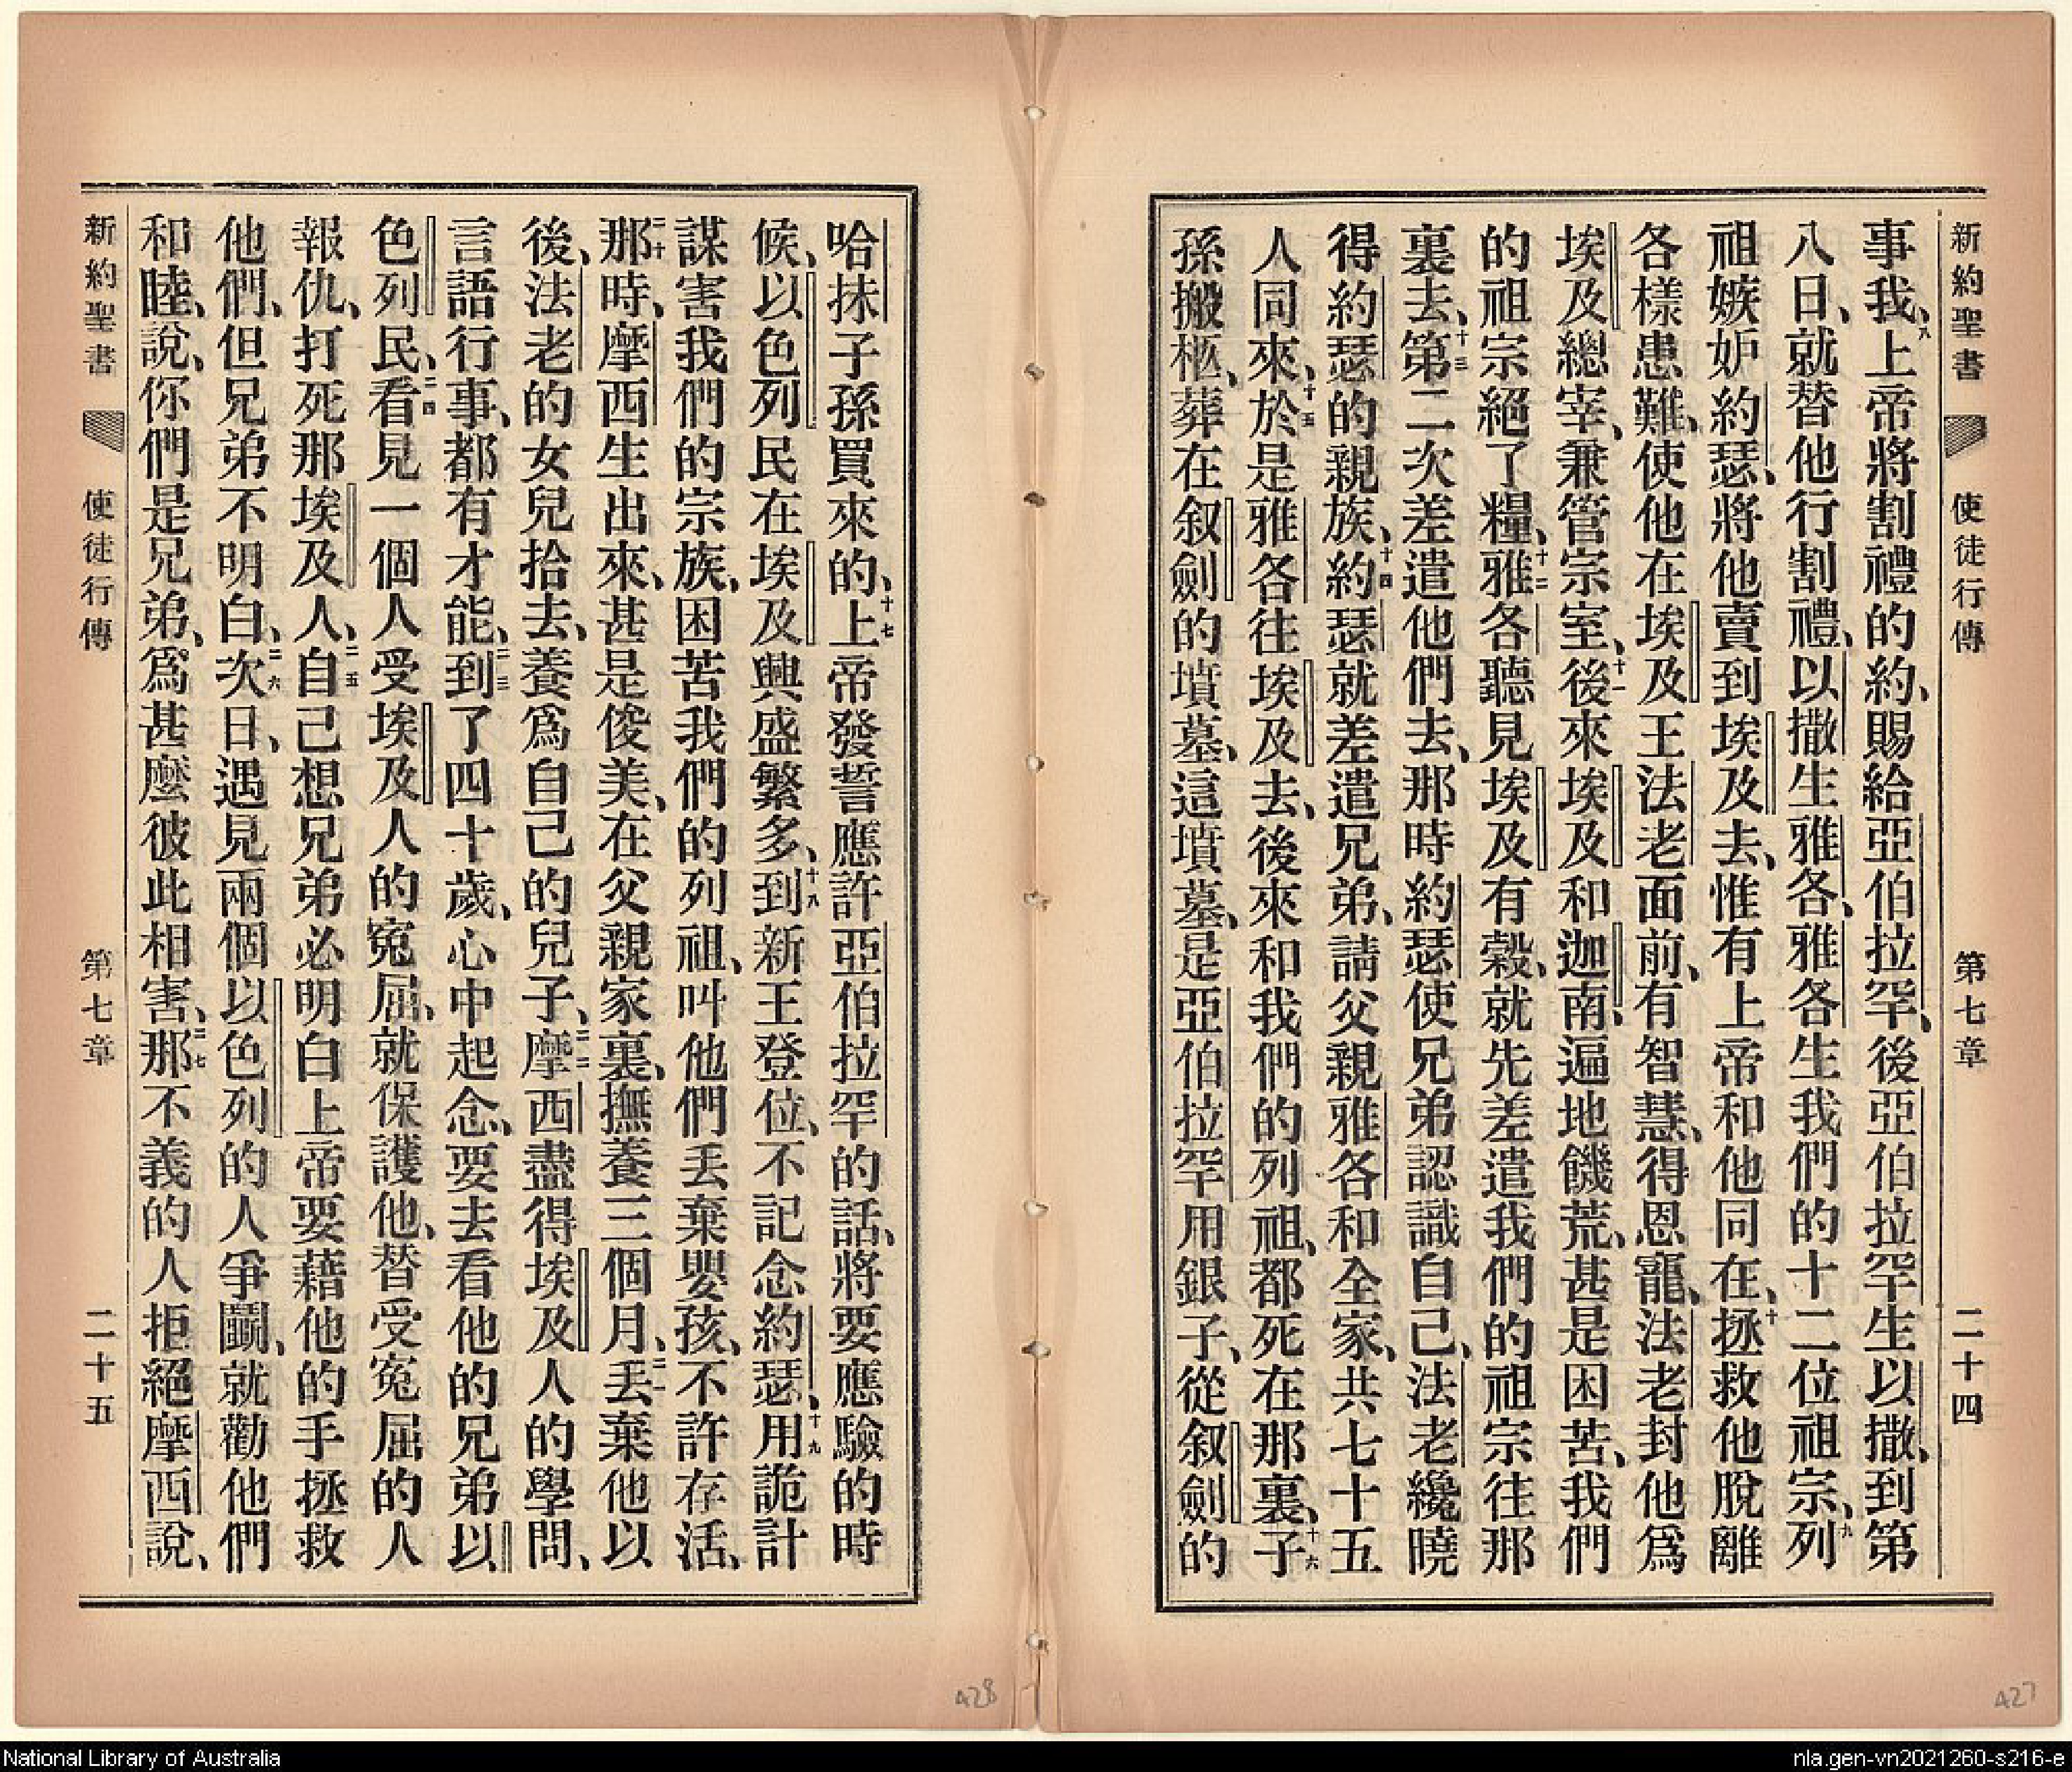 新約聖書 使徒行傳 第七章 二十四
事我、八上帝將割禮的約、賜給亞伯拉罕、後亞伯拉罕生以撒、到第
八日、就替他行割禮、以撒生雅各、雅各生我們的十二位祖宗、九列
祖嫉妒約瑟、將他賣到埃及去、惟有上帝和他同在、十拯救他脫離
各樣患難、使他在埃及王法老面前、有智慧、得恩寵、法老封他爲
埃及總宰、兼管宗室、十一後來埃及和迦南、遍地饑荒、甚是困苦、我們
的祖宗絕了糧、十二雅各聽見埃及有穀、就先差遣我們的祖宗往那
裏去、十三第二次差遣他們去、那時約瑟使兄弟認識自己、法老纔曉
得約瑟的親族、十四約瑟就差遣兄弟、請父親雅各和全家、共七十五
人同來、十五於是雅各往埃及去、後來和我們的列祖、都死在那裏、十六子
孫搬柩、葬在叙劍的墳墓、這墳墓、是亞伯拉罕用銀子、從叙劍的
哈抹子孫買來的、十七上帝發誓應許亞伯拉罕的話、將要應驗的時
候、以色列民在埃及興盛繁多、十八到新王登位、不記念約瑟、十九用詭計
謀害我們的宗族、困苦我們的列祖、叫他們丢棄嬰孩、不許存活、
二十那時、摩西生出來、甚是俊美、在父親家裏、撫養三個月、二一丢棄他以
後、法老的女兒拾去、養爲自己的兒子、二二摩西盡得埃及人的學問、
言語行事、都有才能、二三到了四十歲、心中起念、要去看他的兄弟以
色列民、二四看見一個人受埃及人的寃屈、就保護他、替受寃屈的人
報仇、打死那埃及人、二五自己想兄弟必明白上帝要藉他的手拯救
他們、但兄弟不明白、二六次日、遇見兩個以色列的人爭鬭、就勸他們
和睦、說、你們是兄弟、爲甚麼彼此相害、二七那不義的人拒絕摩西說、
新約聖書 使徒行傳 第七章 二十五
428
427
National Library of Australia
nla.gen-vn2021260-s216-e